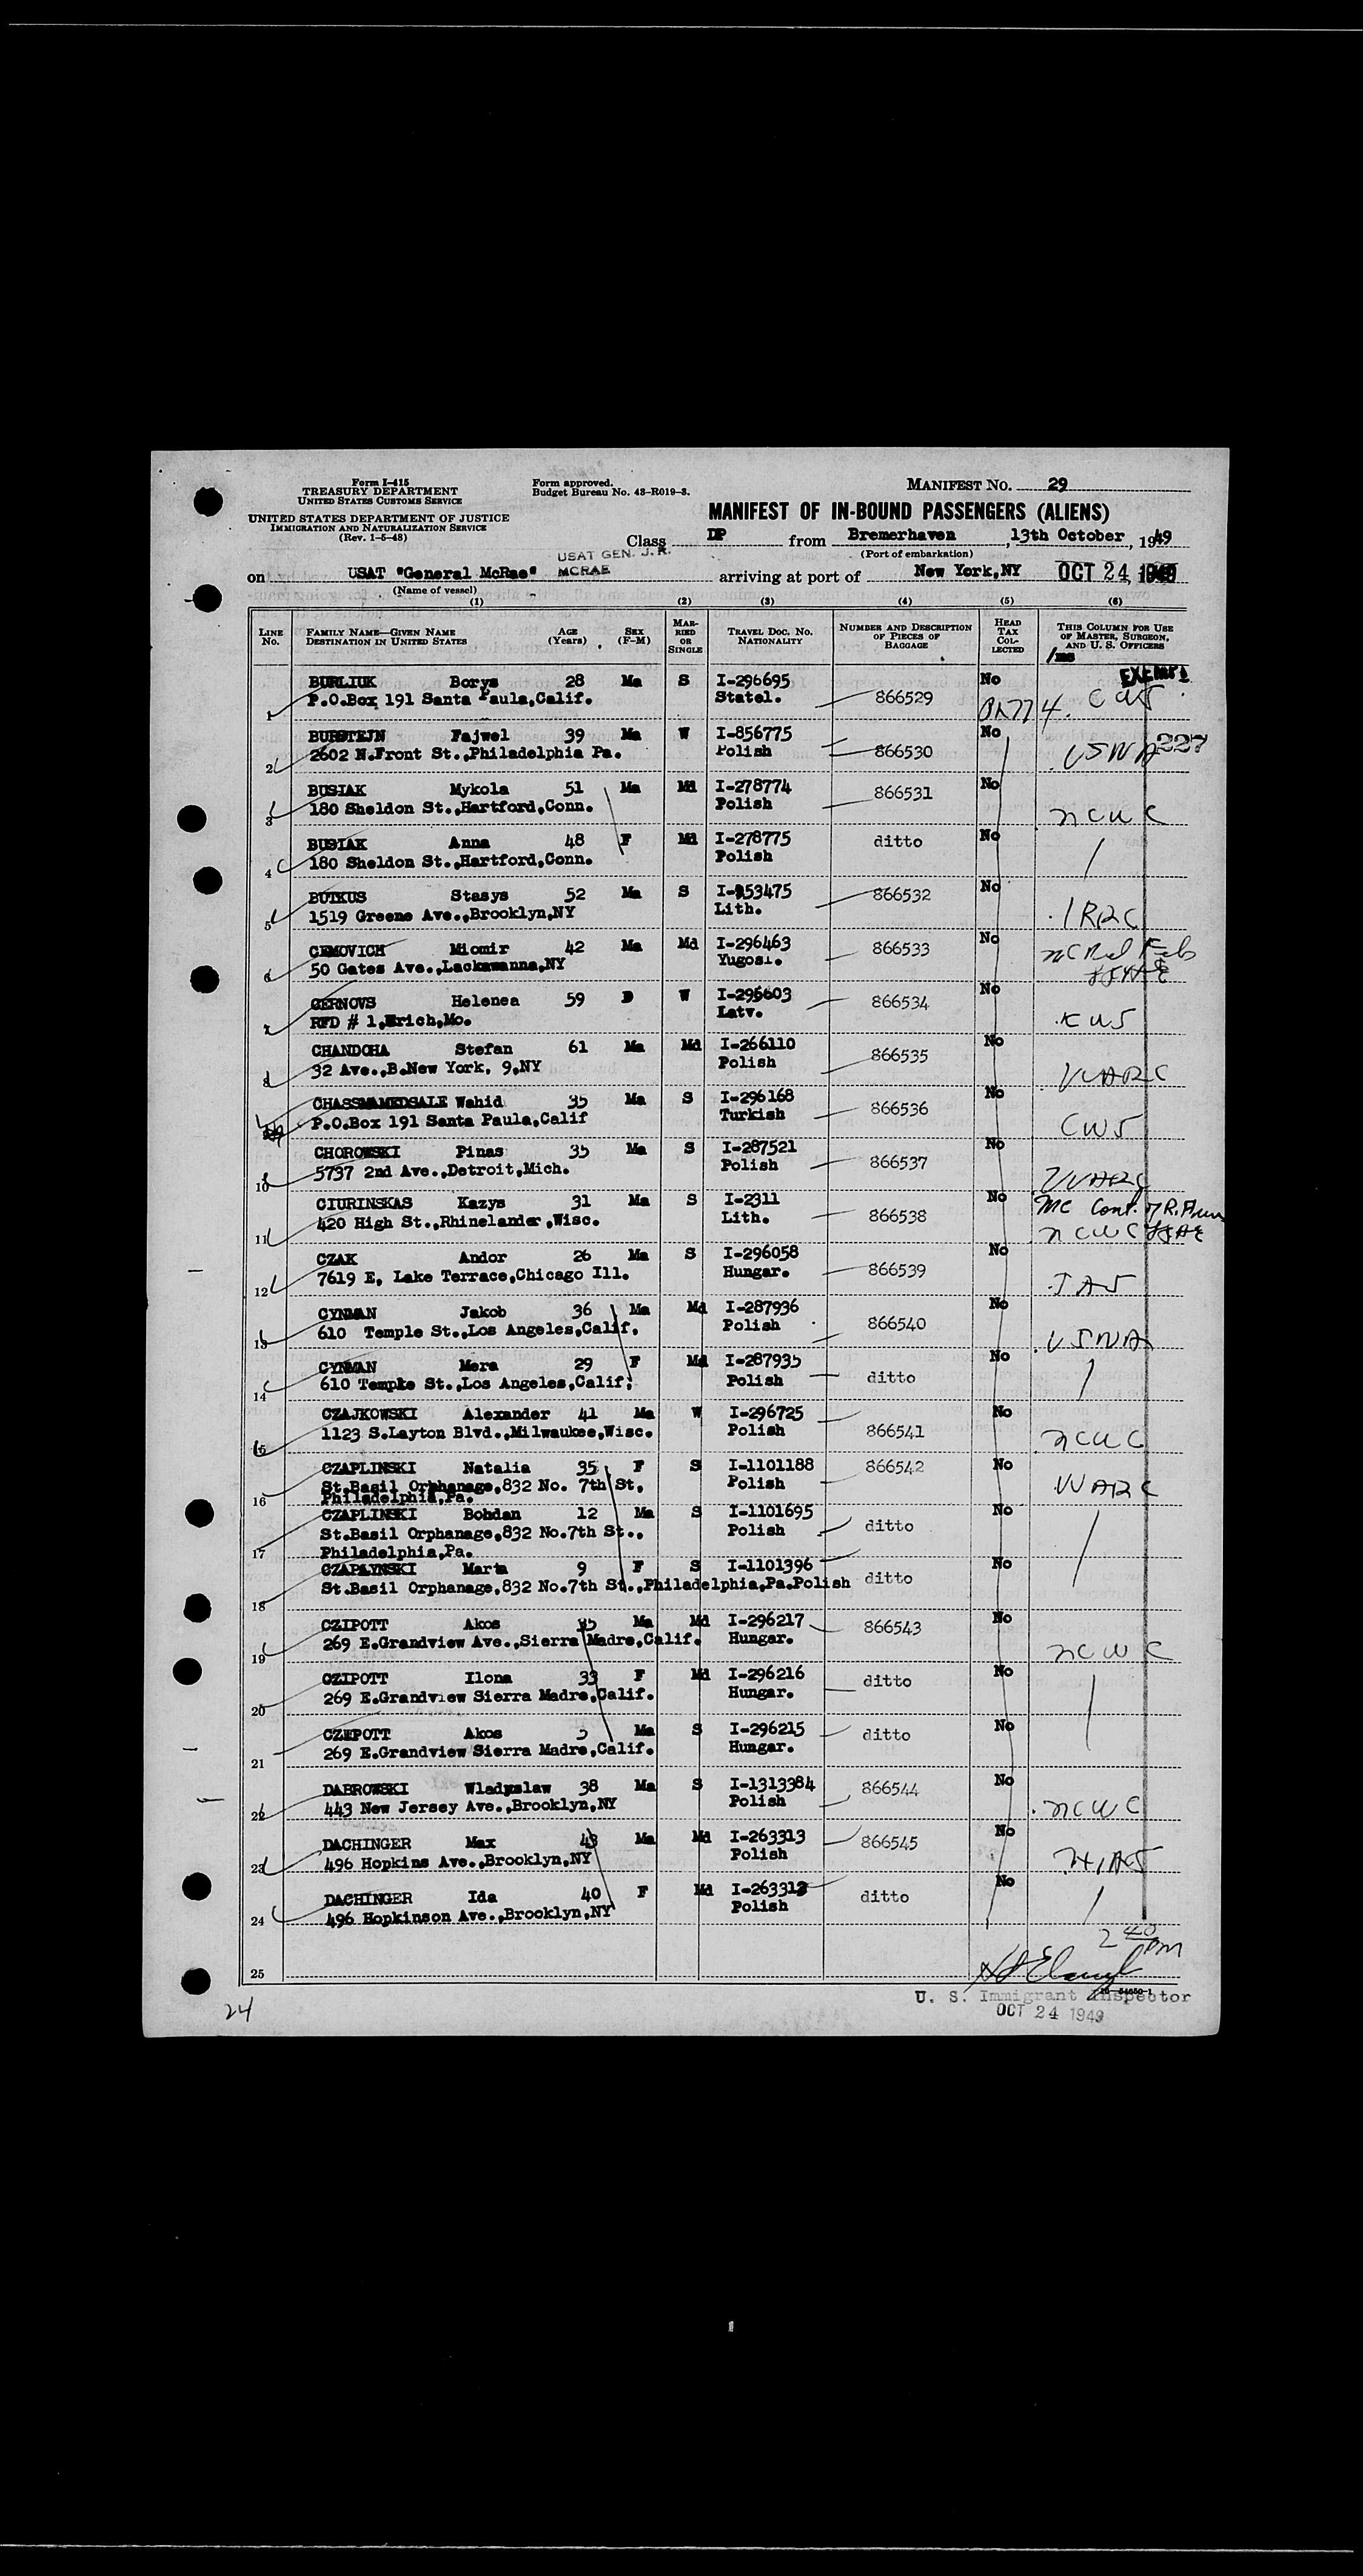 Form I-415
TREASURY DEPARTMENT
UNITED STATES CUSTOMS SERVICE
Form approved.
Budget Bureau No. 43-R019-3.
MANIFEST NO. 29
UNITED STATES DEPARTMENT OF JUSTICE
IMMIGRATION AND NATURALIZATION SERVICE
(Rev. 1-5-48)
MANIFEST OF IN-BOUND PASSENGERS (ALIENS)
Class DP from Bremerhaven, 13th October, 1949
(Port of embarkation)
USAT GEN. J. R.
MCRAE
on USAT "General McRae" arriving at port of New York,NY OCT 24 1949
(Name of vessel)
(1) (2) (3) (4) (5) (6)
LINE NO.
FAMILY NAME—GIVEN NAME
DESTINATION IN UNITED STATES
AGE (Years)
SEX (F-M)
MARRIED OR SINGLE
TRAVEL DOC. NO.
NATIONALITY
NUMBER AND DESCRIPTION OF PIECES OF BAGGAGE
HEAD TAX COLLECTED
THIS COLUMN FOR USE OF MASTER, SURGEON, AND U. S. OFFICERS
/ms
EXEMPT
1 BURLIUK Borys 28 Ma S I-296695 No
P.O.Box 191 Santa Paula,Calif. Statel. 866529 CWS
2 BURSTEJN Fajwel 39 Ma W I-856775 No
2602 N.Front St.,Philadelphia Pa. Polish 866530 USNA 227
3 BUSIAK Mykola 51 Ma Md I-278774 866531 No
180 Sheldon St.,Hartford,Conn. Polish NCWC
4 BUSIAK Anna 48 F Md I-278775 ditto No
180 Sheldon St.,Hartford,Conn. Polish
5 BUTKUS Stasys 52 Ma S I-853475 866532 No
1519 Greene Ave.,Brooklyn,NY Lith.
6 CEMOVICH Miomir 42 Ma Md I-296463 866533 No
50 Gates Ave.,Lackawanna,NY Yugosl.
7 CERNOVS Helenea 59 W I-295603 866534 No
RFD # 1,Urich,Mo. Latv. CWS
8 CHANDOHA Stefan 61 Ma Md I-266110 866535 No
32 Ave.,B.New York, 9,NY Polish WARC
CHASSMAMEDSALE Wahid 35 Ma S I-296168 866536 No
P.O.Box 191 Santa Paula,Calif Turkish CWS
10 CHOROWSKI Pinas 35 Ma S I-287521 866537 No
5737 2nd Ave.,Detroit,Mich. Polish WARC
11 CIURINSKAS Kazys 31 Ma S I-2311 866538 No
420 High St.,Rhinelander,Wisc. Lith. NCWC
12 CZAK Andor 26 Ma S I-296058 866539 No
7619 E, Lake Terrace,Chicago Ill. Hungar.
13 CYNMAN Jakob 36 Ma Md I-287936 866540 No
610 Temple St.,Los Angeles,Calif, Polish USNA
14 CYNMAN Mera 29 F Md I-287935 ditto No
610 Temple St.,Los Angeles,Calif; Polish
15 CZAJKOWSKI Alexander 41 Ma W I-296725 866541 No
1123 S.Layton Blvd.,Milwaukee,Wisc. Polish NCWC
16 CZAPLINSKI Natalia 35 F S I-1101188 866542 No
St.Basil Orphanage,832 No. 7th St, Polish WARC
Philadelphia,Pa.
17 CZAPLINSKI Bohdan 12 Ma S I-1101695 ditto No
St.Basil Orphanage,832 No.7th St., Polish
Philadelphia,Pa.
18 CZAPLYNSKI Marta 9 F S I-1101396 ditto No
St.Basil Orphanage,832 No.7th St.,Philadelphia,Pa.Polish
19 CZIPOTT Akos 35 Ma Md I-296217 866543 No
269 E.Grandview Ave.,Sierra Madre,Calif. Hungar. NCWC
20 CZIPOTT Ilona 33 F Md I-296216 ditto No
269 E.Grandview Sierra Madre,Calif. Hungar.
21 CZIPOTT Akos Ma S I-296215 ditto No
269 E.Grandview Sierra Madre,Calif. Hungar.
22 DABROWSKI Wladyslaw 38 Ma S I-1313384 866544 No
443 New Jersey Ave.,Brooklyn,NY Polish NCWC
23 DACHINGER Max 43 Ma Md I-263313 866545 No
496 Hopkins Ave.,Brooklyn,NY Polish HIAS
24 DACHINGER Ida 40 F Md I-263312 ditto No
496 Hopkinson Ave.,Brooklyn,NY Polish
25
2 40 PM
U. S. Immigrant Inspector
OCT 24 1949
24